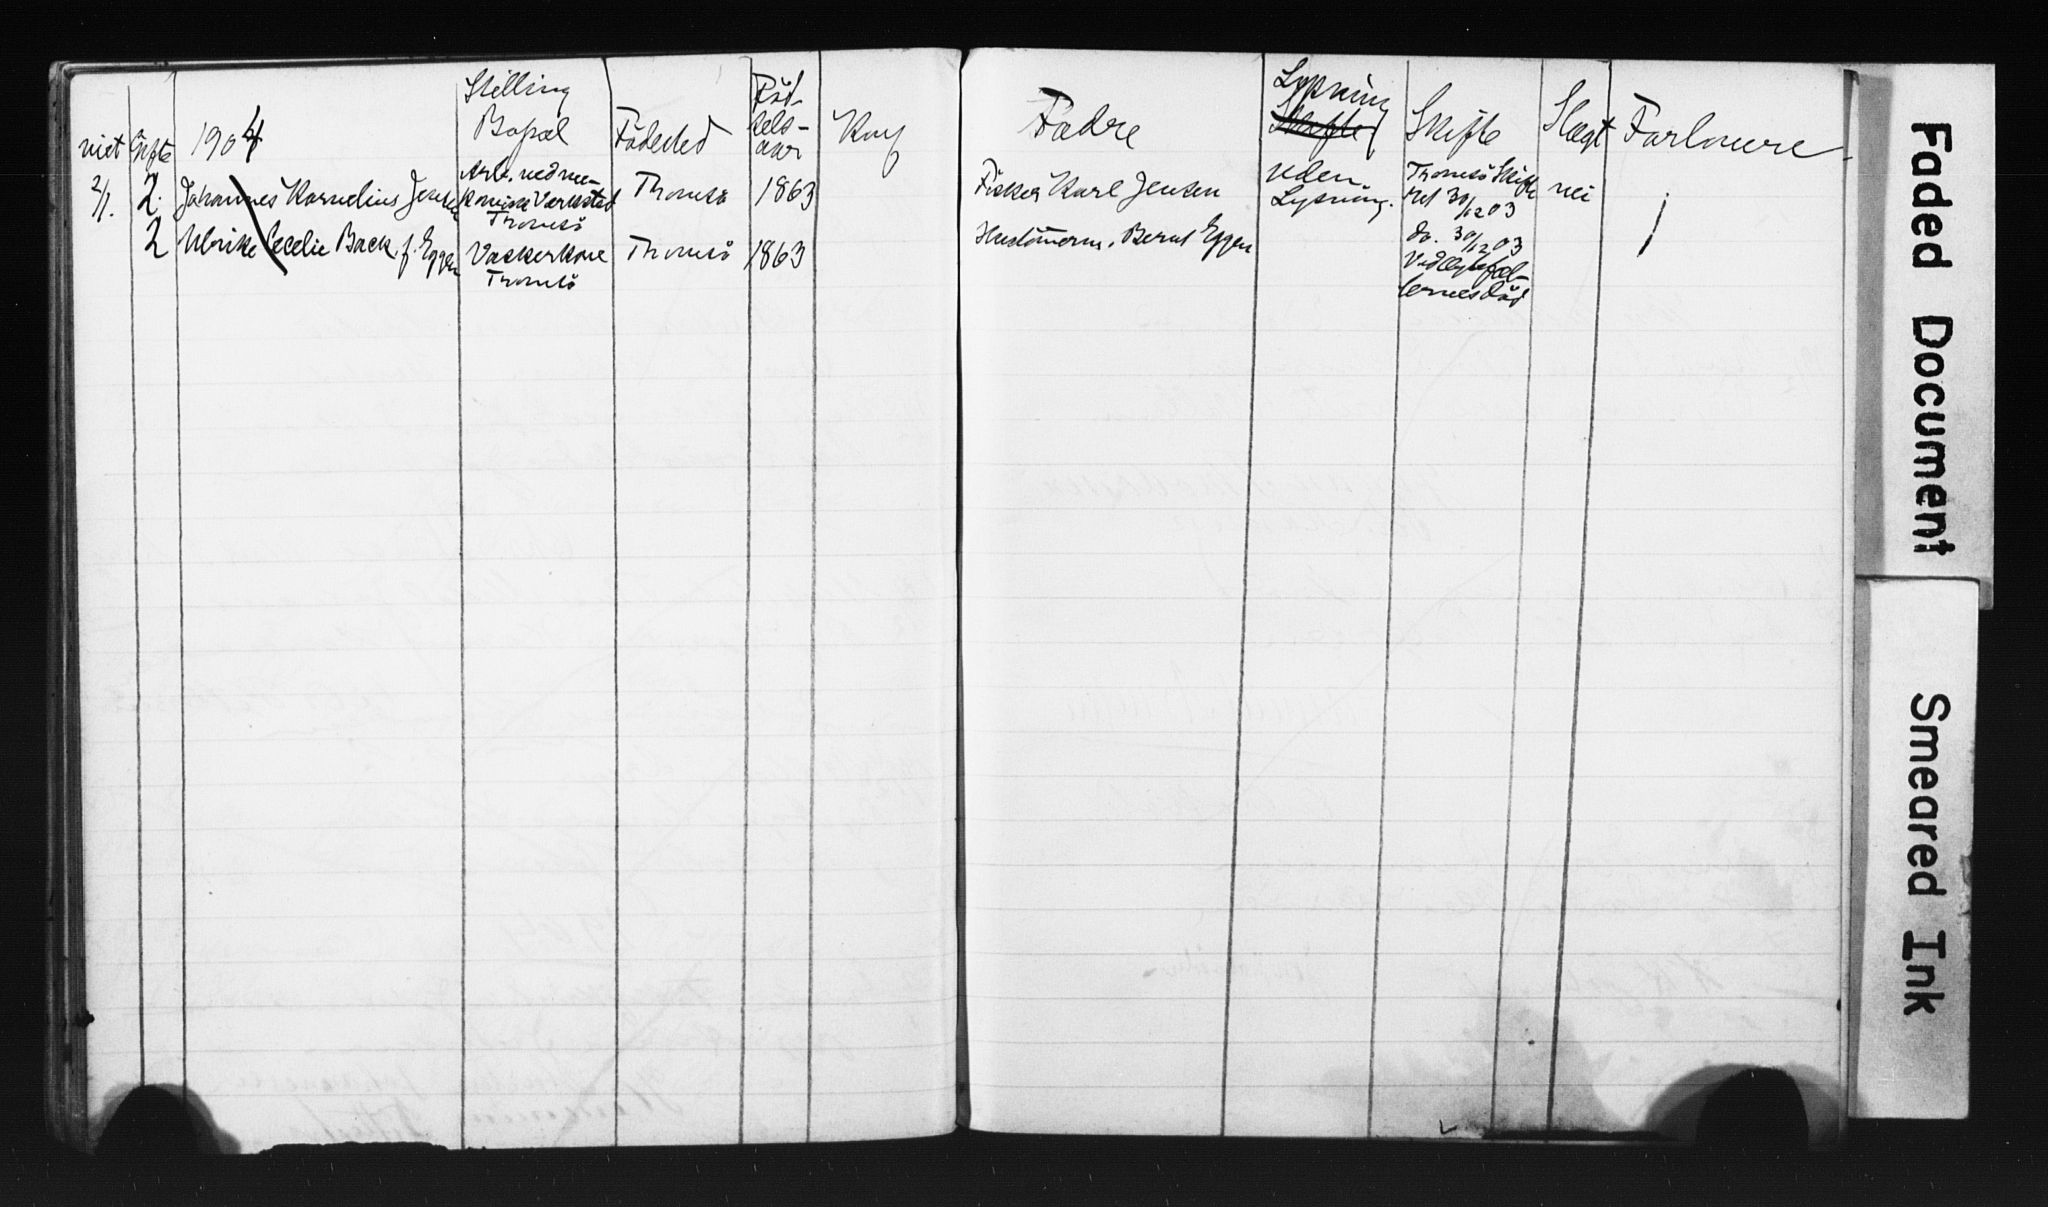 viet Gifte 1904 Stilling Bopæl Födested Födselsaar Kop Fædre Lysning Skifte Slægt Forlovere
2/1. 2. Johannes Kornelius Jensen Arb. ved mekanisk Verksted Tromsö Tromsö 1863 Fisker Karl Jensen Uden Lysning. Tromsö Skifteret 30/12 03 nei
2 Ulrike Cecelie Back f. Eggen Vaskerkone Tromsö Tromsö 1863 Hustömerm. Bernt Eggen do. 30/12 03 Ved Ægtefællernes Död
Faded Document
Smeared Ink